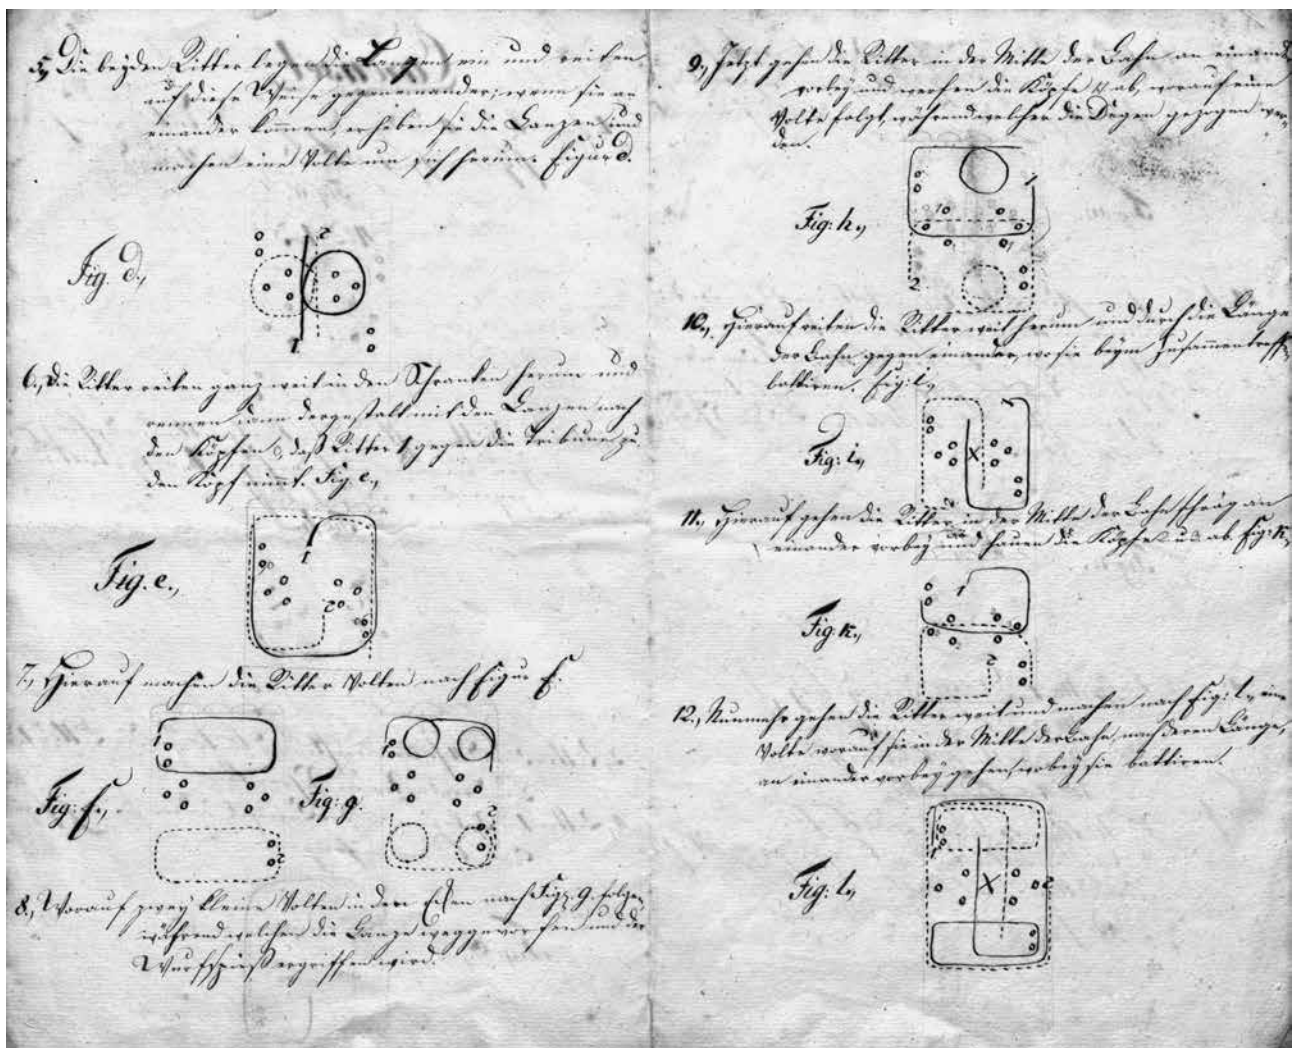 5., Die beyden Ritter legen die Lanzen ein und reiten
auf diese Weise gegeneinander; wenn sie an
einander kommen, erheben sie die Lanzen und
machen eine Volte um sich herum. Figur d.
Fig. d.,
2
1
6., Die Ritter reiten ganz weit in den Schranken herum und
rennen dann dergestalt mit den Lanzen nach
den Köpfen, daß Ritter 1, gegen die Tribune zu,
den Kopf nimmt. Fig. e.,
Fig. e.,
1
2
7., Hierauf machen die Ritter Volten nach Figur f.
Fig: f.,
1
2
Fig: g.
2
8., Worauf zwey kleine Volten in den Ecken nach Fig: g. folgen,
während welchen die Lanze weggeworfen und der
Wurfspieß ergriffen wird.
9., Jetzt gehen die Ritter in der Mitte der Bahn an einander
vorbey und werfen die Köpfe ab, worauf eine
Volte folgt, während welcher die Degen gezogen wer-
den.
Fig: h.,
1
2
10., Hierauf reiten die Ritter weit herum und durch die Länge
der Bahn gegen einander, wo sie beym Zusammentreffen
battiren. Fig: i.,
Fig: i.,
1
X
2
11., Hierauf gehen die Ritter in der Mitte der Bahn schräg an
einander vorbey und hauen die Köpfe ab. Fig: k.,
Fig: k.,
1
2
12., Nunmehr gehen die Ritter weit und machen nach Fig: l., eine
Volte worauf sie in der Mitte der Bahn, nach deren Länge,
an einander vorbey gehen, wobey sie battiren.
Fig: l.,
1
X
2